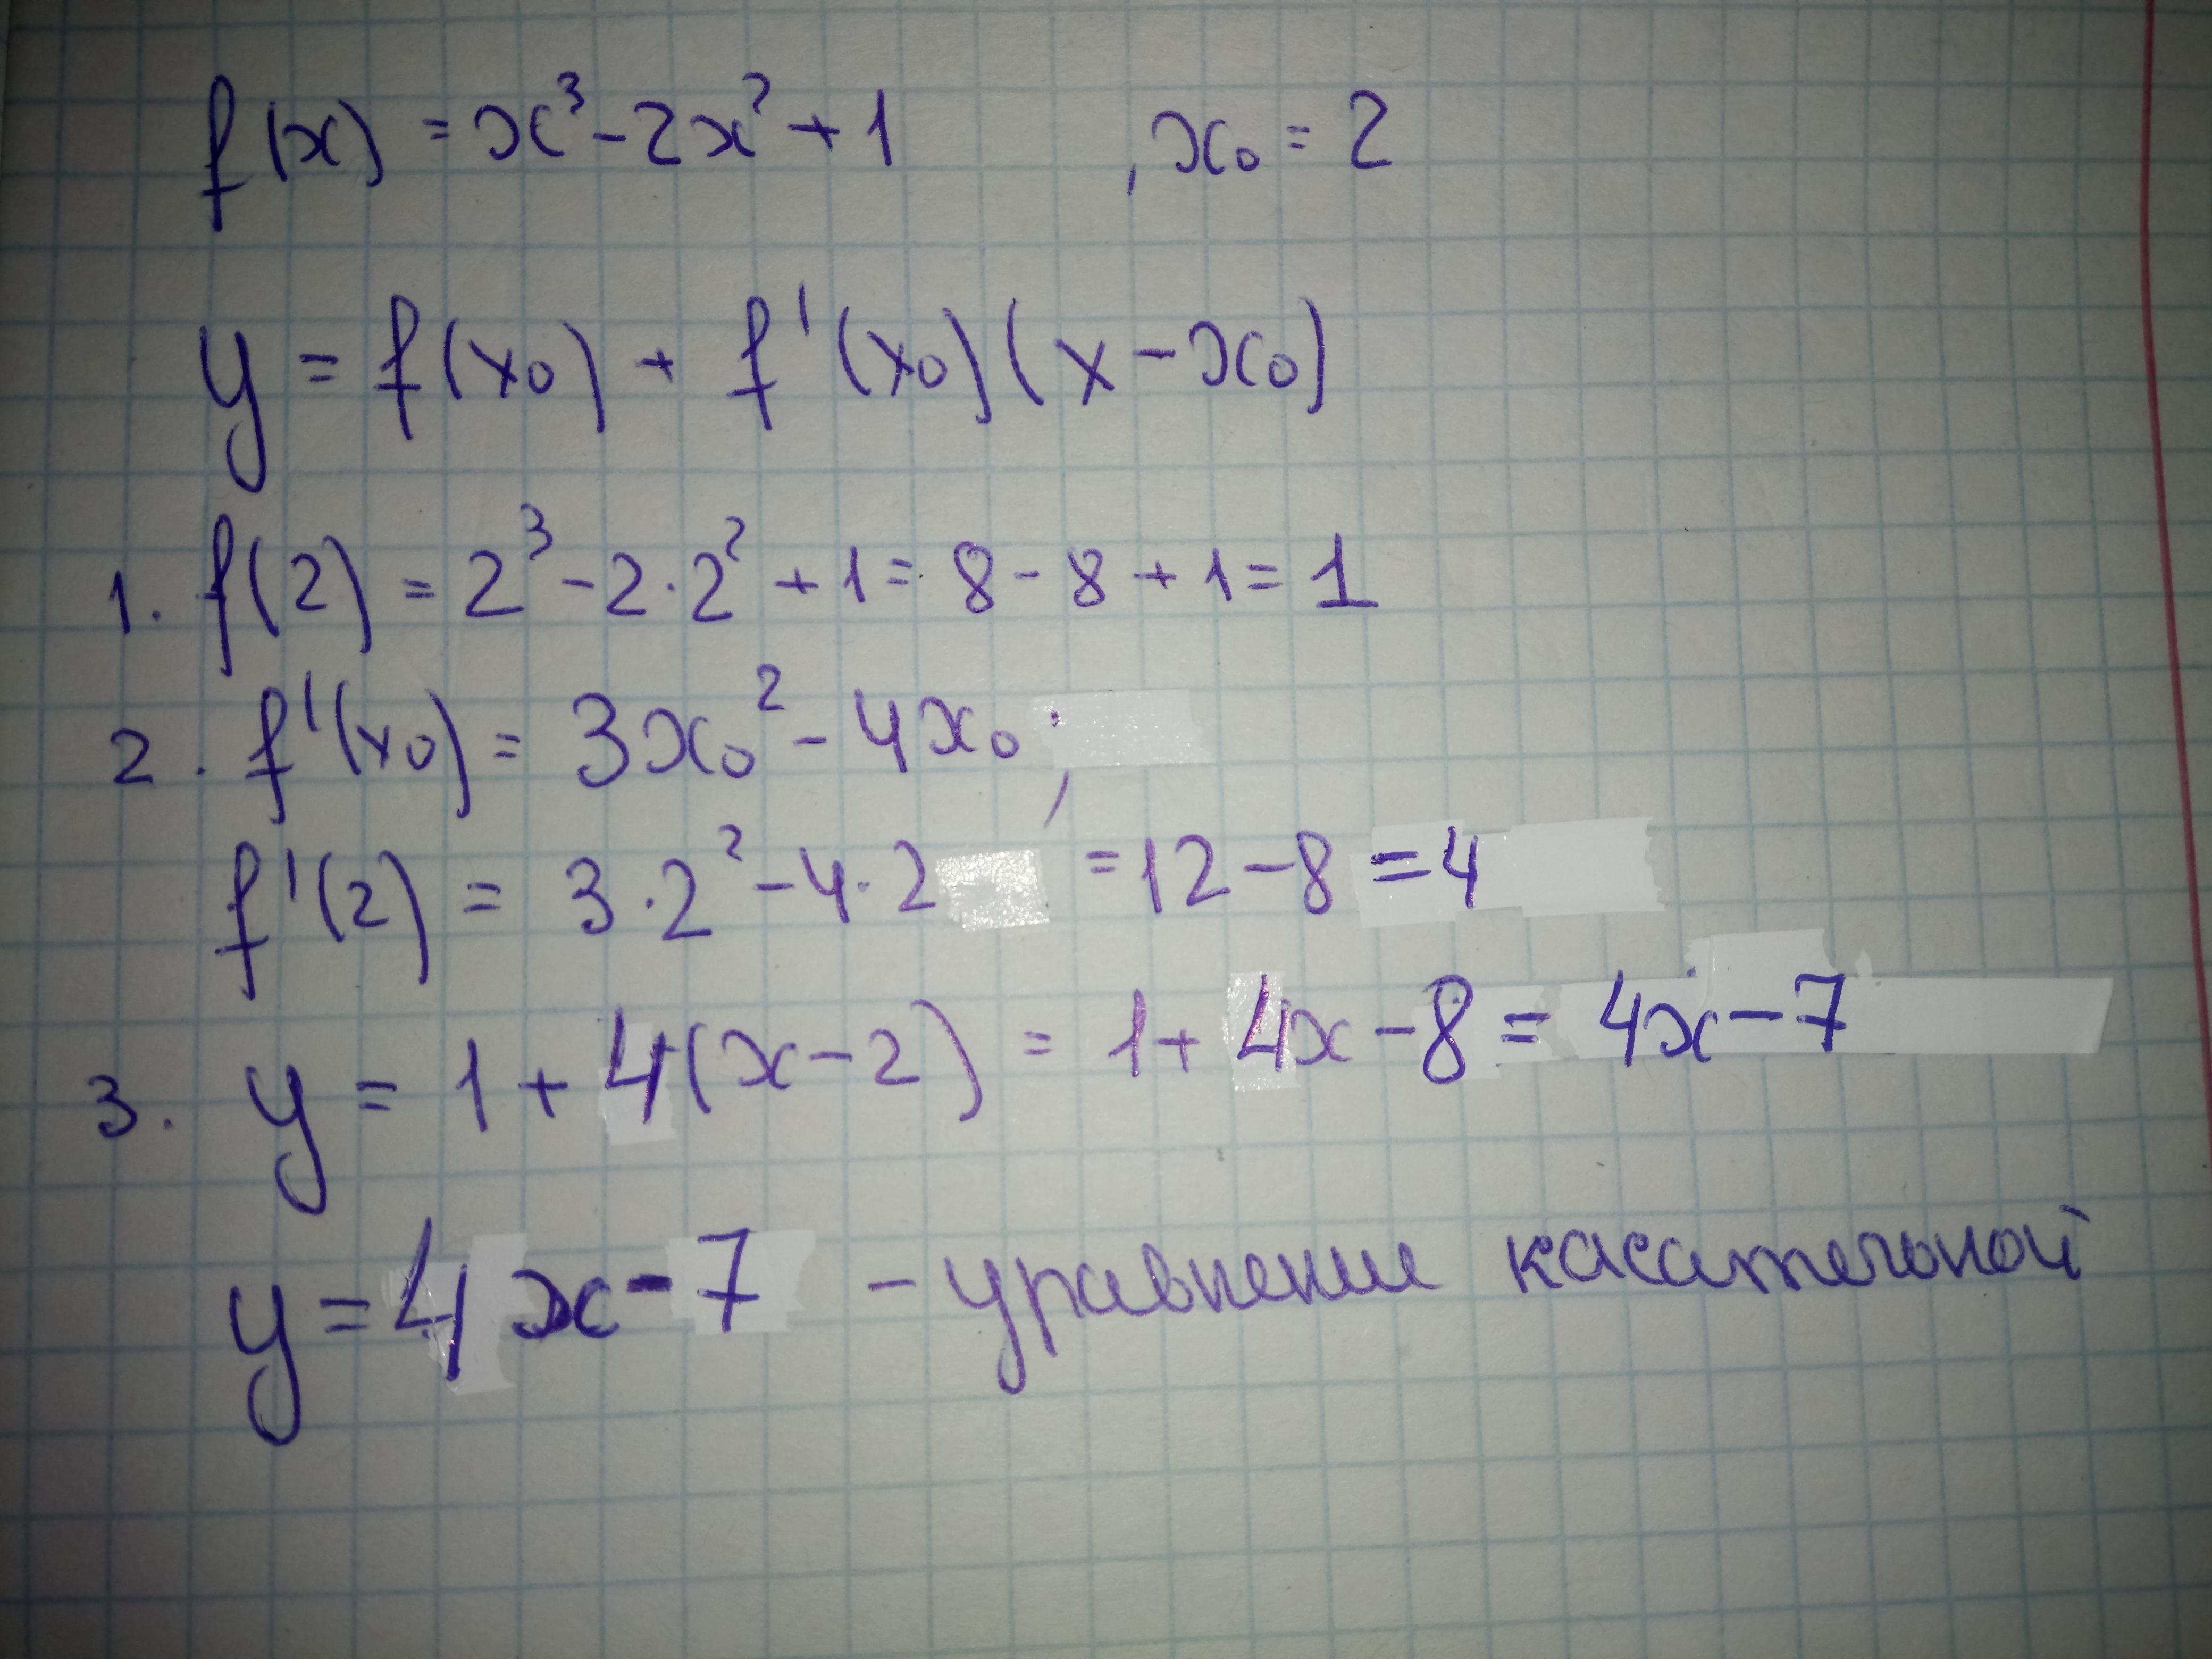 f(x) = x³ - 2x² + 1 , x₀ = 2
y = f(x₀) + f'(x₀)(x - x₀)
1. f(2) = 2³ - 2·2² + 1 = 8 - 8 + 1 = 1
2. f'(x₀) = 3x₀² - 4x₀;
f'(2) = 3·2² - 4·2 = 12 - 8 = 4
3. y = 1 + 4(x - 2) = 1 + 4x - 8 = 4x - 7
y = 4x - 7 - уравнение касательной